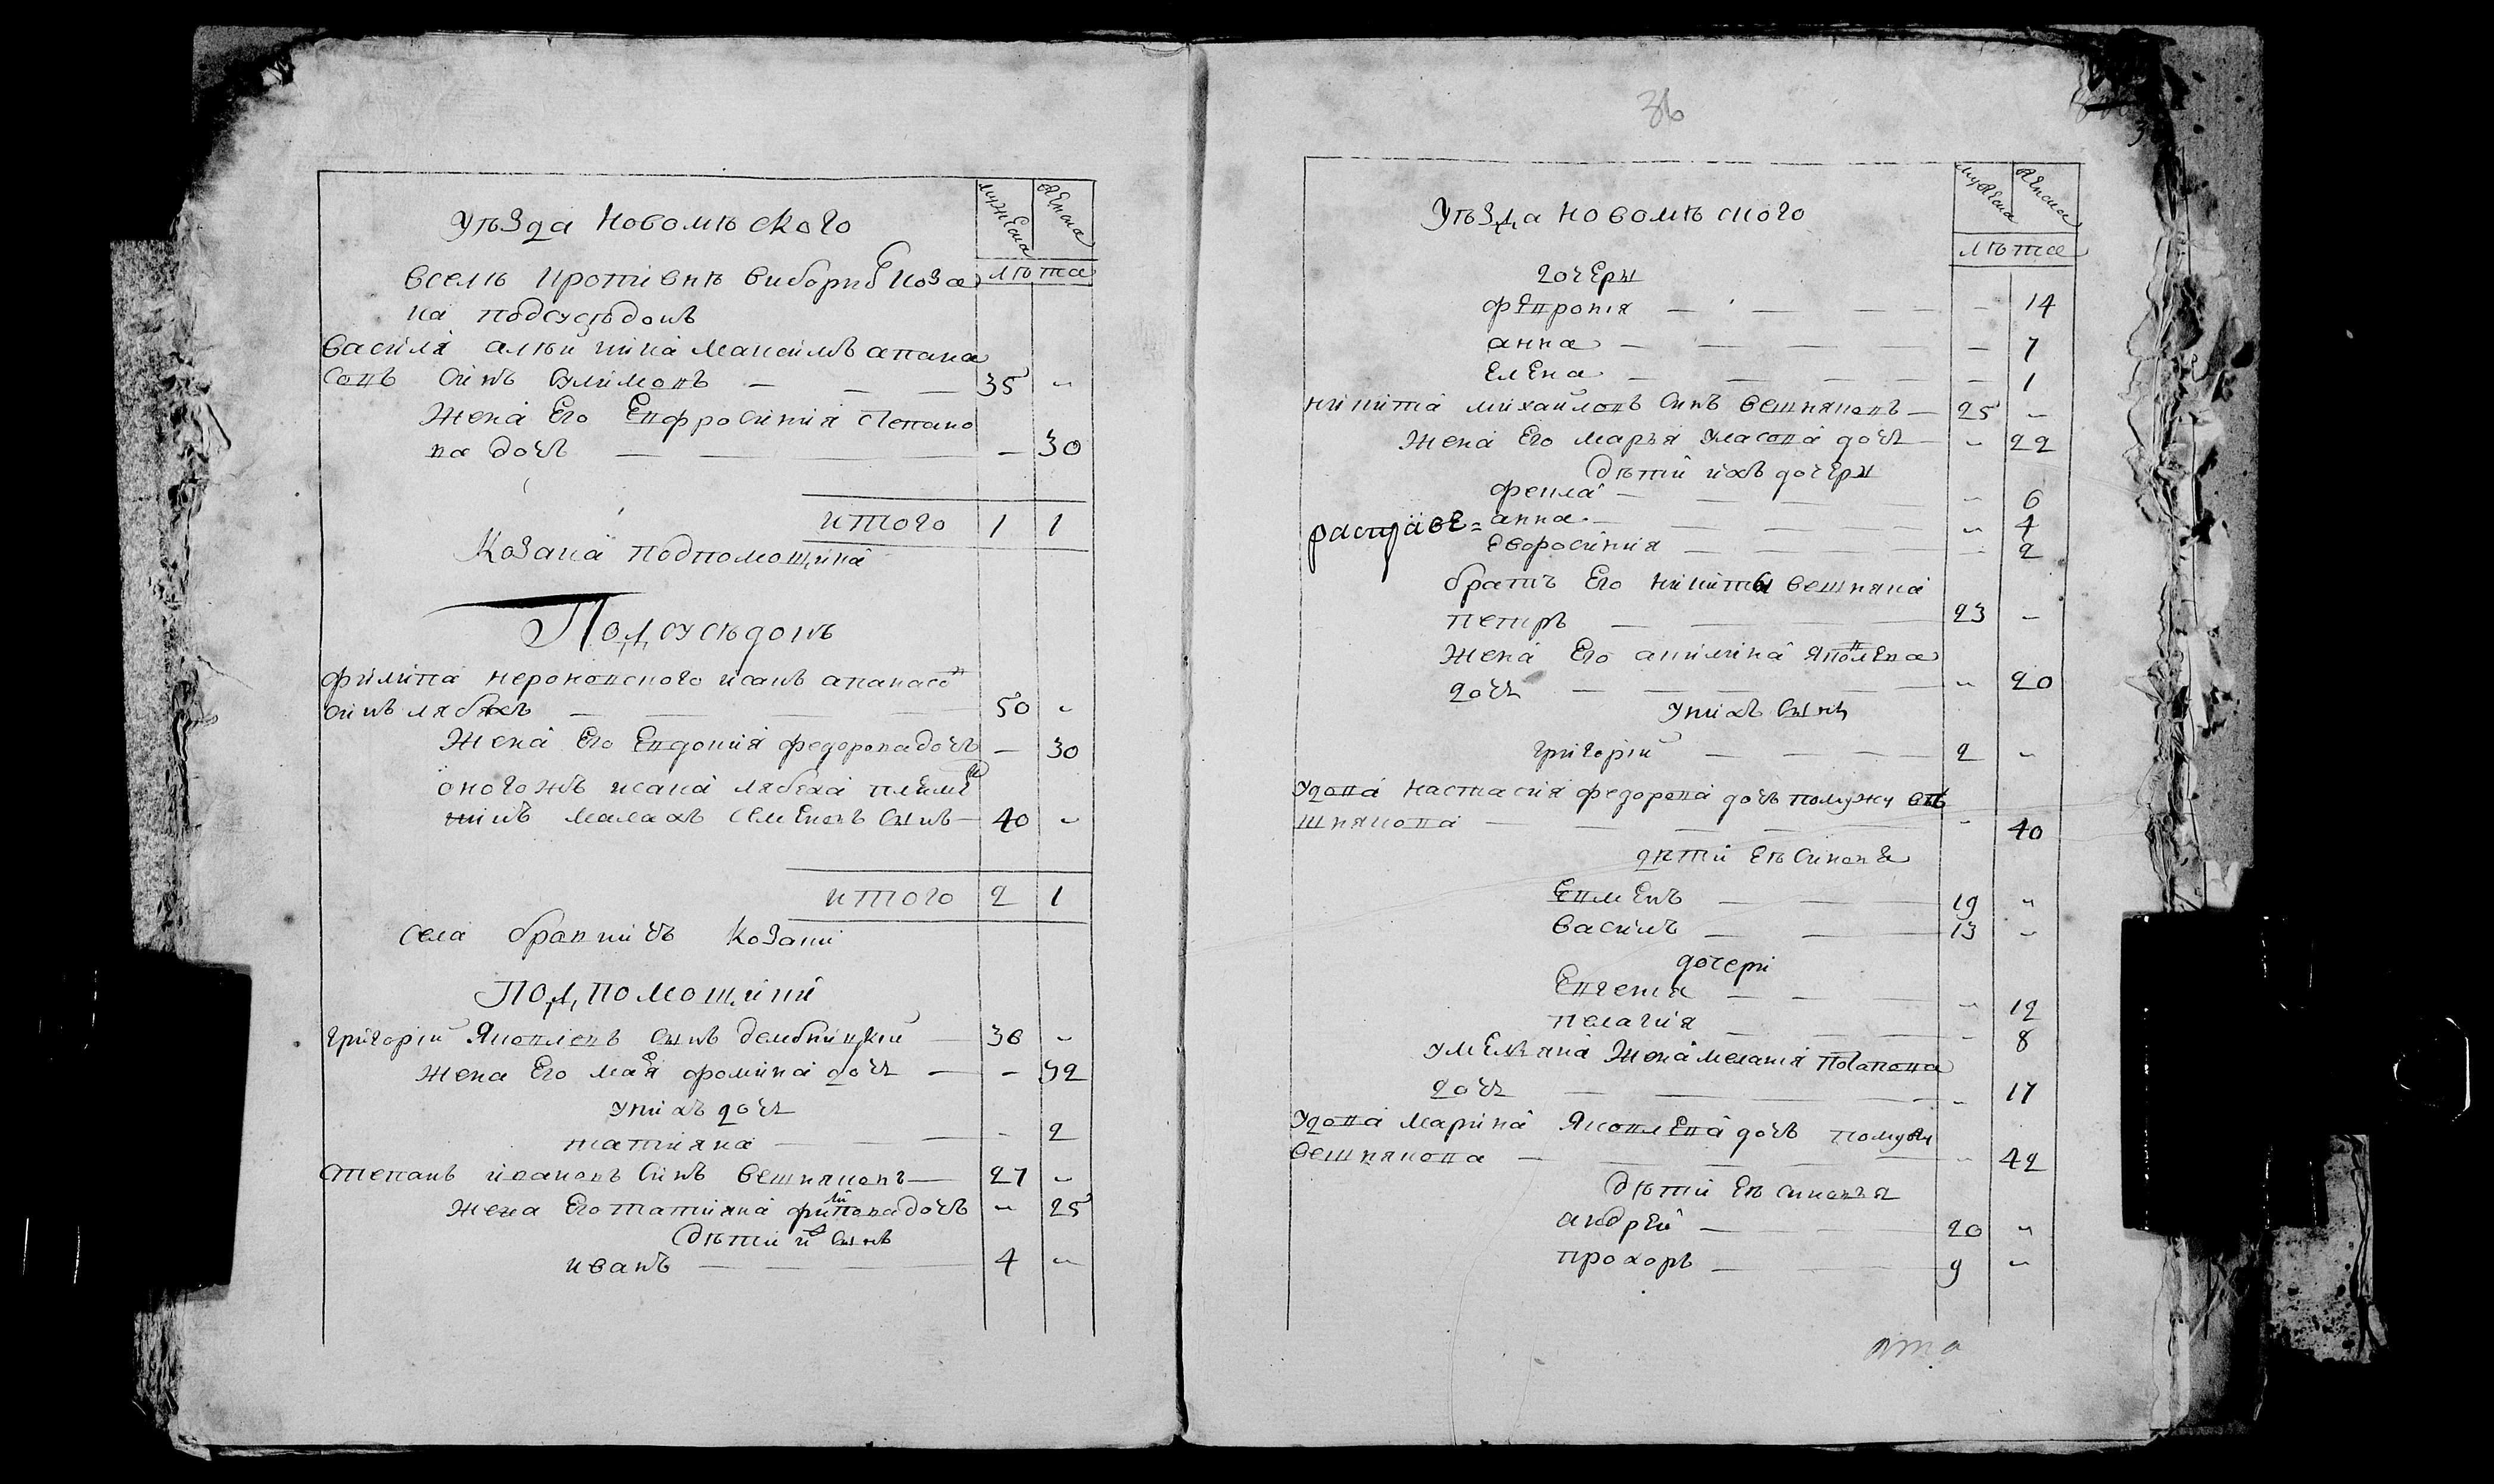 Уѣзда Новомѣского
мужеска
женска
лѣта
Вселѣ Протiвнѣ виборнЕ Коза
ка подсусѣдокъ
Василя Максимъ апана
совъ синъ Филимонъ — — — 35 „
Жена Его Евфросиния Степано
ва дочъ — — — — 30
итого 1 1
Козака подпомощика
Подсусѣдокъ
Филипа исакъ апанасо
синъ лябехъ — — — 50 „
Жена Его Евдокия федоровадочъ — 30
оногожъ исака лябеха племе
никъ Малахъ Семеновъ Сынъ — 40 „
итого 2 1
Села бравничъ Козаки
Подпомощики
Григорiй Яковлевъ Сынъ дембицкiй — 36 „
Жена Его марЕя фомина дочъ — — 32
У них дочъ
татияна — — - 2
Степанъ ивановъ Синъ вешняковъ — 27 „
Жена Его татияна филиповадочъ „ 25
Дѣти ихъ Сынъ
иванъ — — — 4 „
36
Уѣзда Новомѣского
мужеска
женска
лѣта
дочеры
феврония — — — — — 14
анна — — — — — 7
Елена — — — — — 1
никита михайловъ Синъ вешняковъ — 25 „
Жена Его марья Уласова дочъ — „ 22
Дѣти ихъ дочеры
фекла — — — „ 6
анна — — — „ 4
Еворосиния — — — „ 2
братъ Его никиты вешняка
петиръ — — — 23 —
Жена Его акилина Яковлева
дочъ — — — „ 20
У них Сынъ
григорiй — — — 2 „
Удова Настасия федорова дочъ помужу ве
шнякова — — — — „ 40
дѣти Еѣ Синовя
— — 19 „
василъ — — 13 „
дочери
Евгения — — — „ 12
пелагия — — — „ 8
Умеляна Жена мелания Потапова
дочъ — — — — „ 17
Удова Марина Яковлева дочъ помужу
вешнякова — — — — „ 42
Дѣти Еѣ синовья
андрей — — 20 „
прохоръ — — 9 „